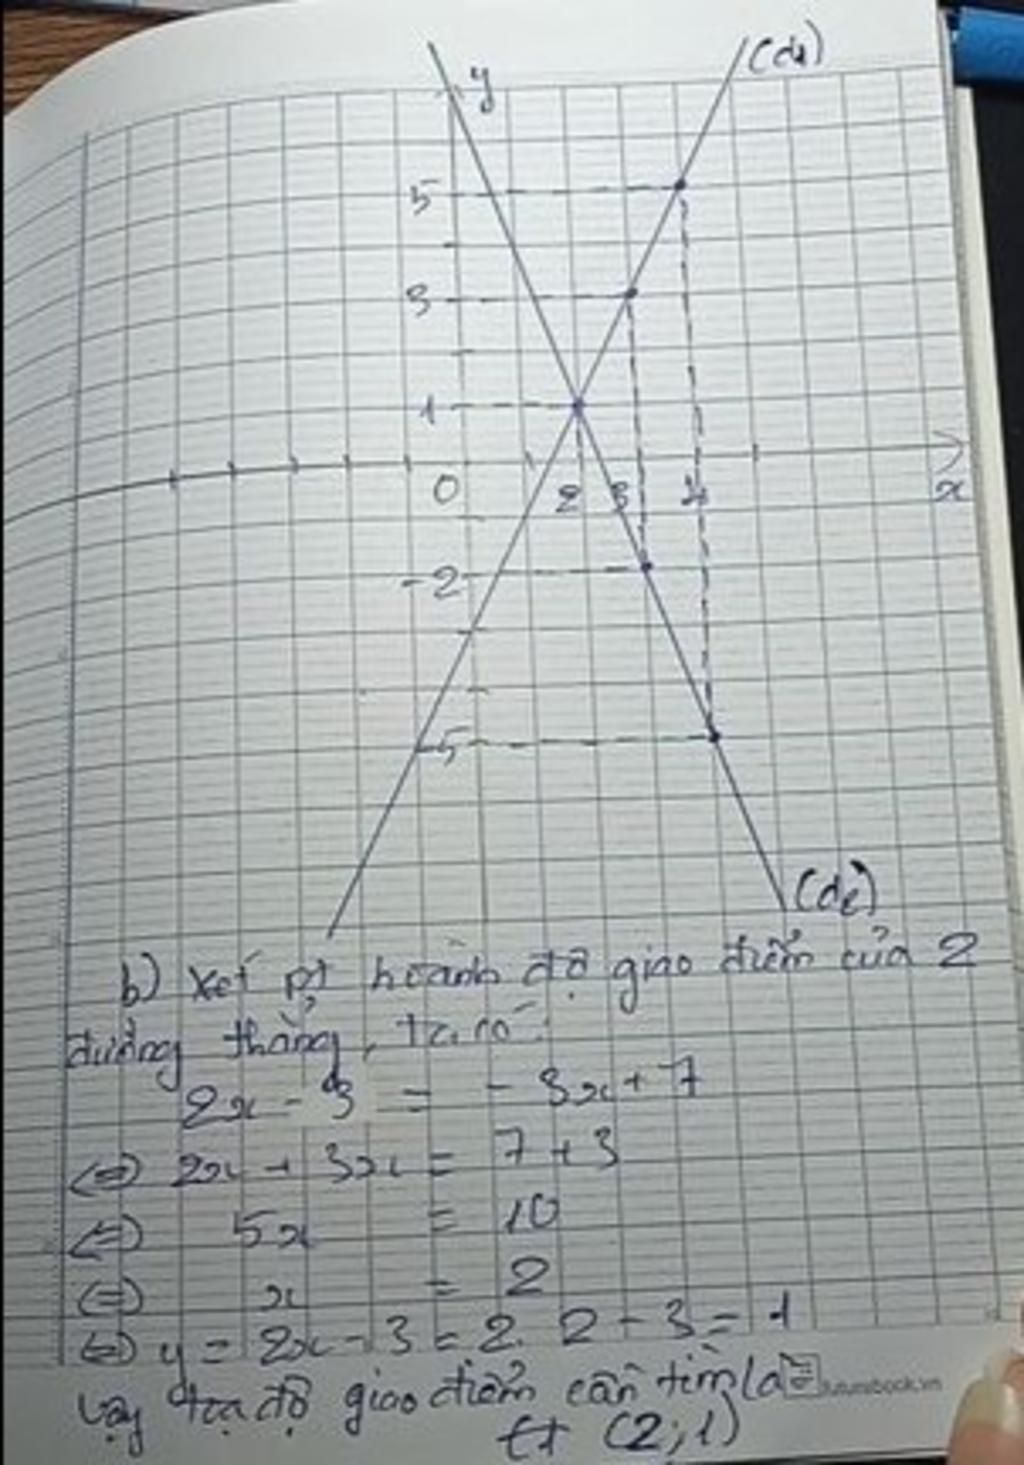 (d1)
y
5
3
1
0 2 3 4 x
-2
-5
(d2)
b) Xét pt hoành độ giao điểm của 2
đường thẳng, ta có:
2x - 3 = - 3x + 7
<=> 2x + 3x = 7 + 3
<=> 5x = 10
<=> x = 2
<=> y = 2x - 3 = 2. 2 - 3 = 1
Vậy tọa độ giao điểm cần tìm là
(2;1)